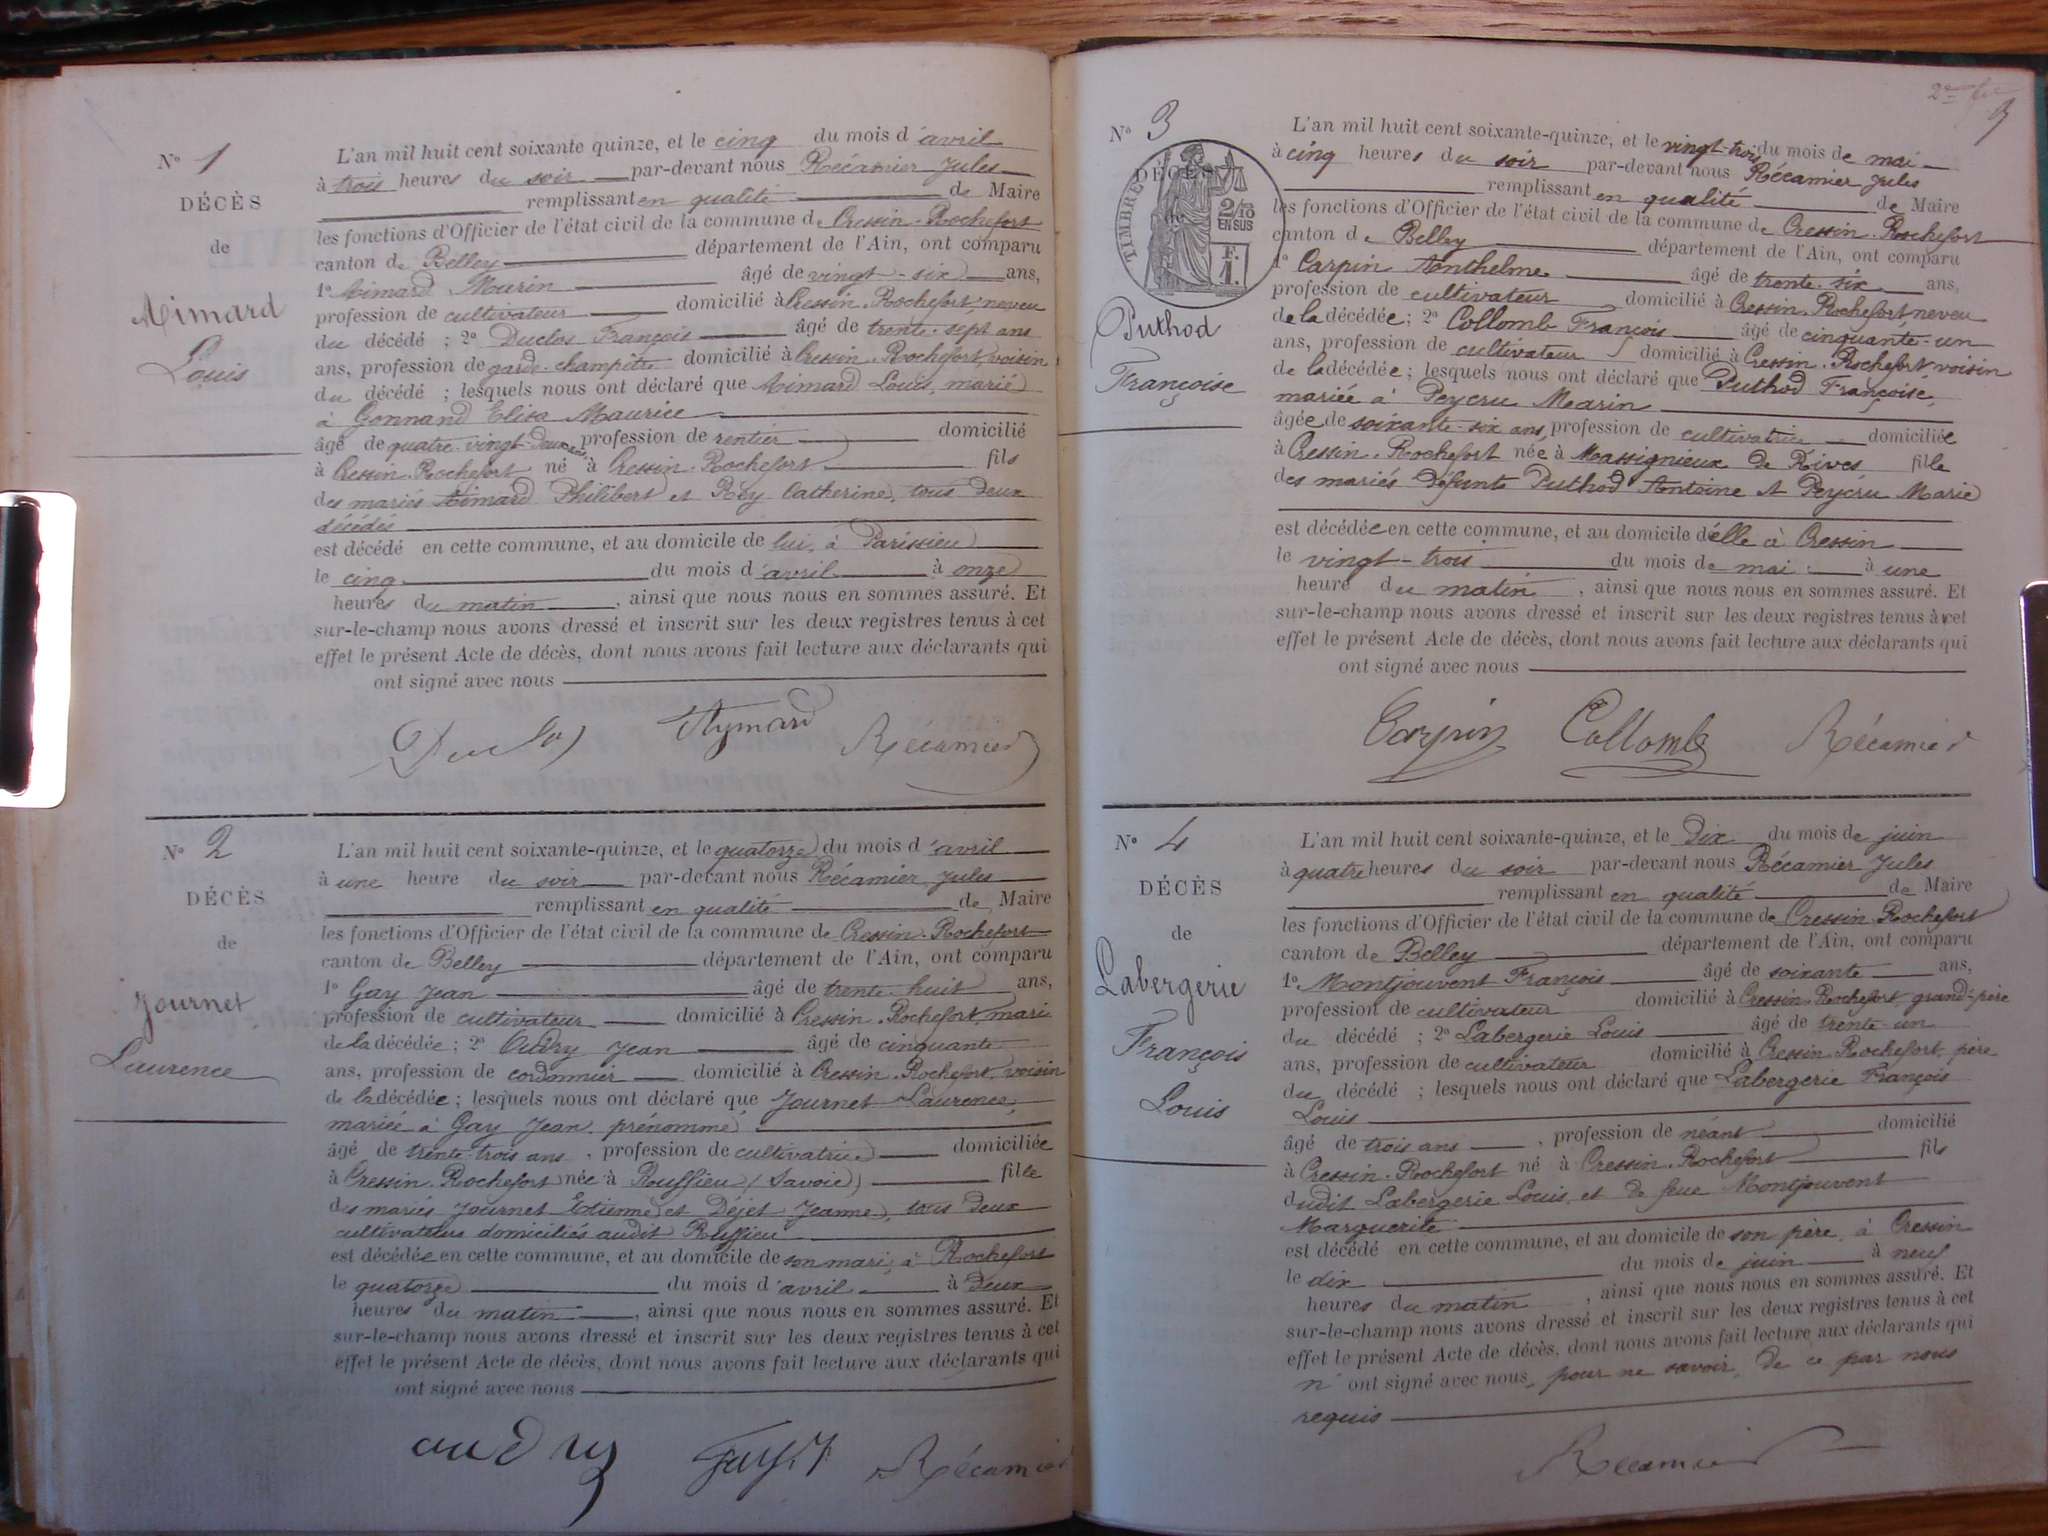 N° 1
DÉCÈS
de
Aimard
Louis
L'an mil huit cent soixante quinze, et le cinq du mois d'avril
à trois heures du soir par-devant nous Récamier Jules
remplissant en qualité de Maire
les fonctions d'Officier de l'état civil de la commune de Cressin-Rochefort
canton de Belley département de l'Ain, ont comparu
1° Aimard Mourin âgé de vingt-six ans,
profession de cultivateur domicilié à Cressin-Rochefort, neveu
du décédé ; 2° Duclos François âgé de trente-sept ans
ans, profession de garde-champêtre domicilié à Cressin-Rochefort, voisin
du décédé ; lesquels nous ont déclaré que Aimard Louis, marié
à Gonnand Elisa Maurice
âgé de quatre-vingt-deux ans, profession de rentier domicilié
à Cressin-Rochefort né à Cressin-Rochefort fils
des mariés Aimard Philibert et Rey Catherine, tous deux
décédés
est décédé en cette commune, et au domicile de lui, à Parissieu
le cinq du mois d'avril à onze
heures du matin, ainsi que nous nous en sommes assuré. Et
sur-le-champ nous avons dressé et inscrit sur les deux registres tenus à cet
effet le présent Acte de décès, dont nous avons fait lecture aux déclarants qui
ont signé avec nous
Duclos Aymard Récamier
N° 2
DÉCÈS
de
Journet
Laurence
L'an mil huit cent soixante-quinze, et le quatorze du mois d'avril
à une heure du soir par-devant nous Récamier Jules
remplissant en qualité de Maire
les fonctions d'Officier de l'état civil de la commune de Cressin-Rochefort
canton de Belley département de l'Ain, ont comparu
1° Gay Jean âgé de trente-huit ans,
profession de cultivateur domicilié à Cressin-Rochefort, mari
de la décédée ; 2° Audry Jean âgé de cinquante
ans, profession de cordonnier domicilié à Cressin-Rochefort, voisin
de la décédée ; lesquels nous ont déclaré que Journet Laurence,
mariée à Gay Jean prénommé,
âgé de trente-trois ans, profession de cultivatrice domiciliée
à Cressin-Rochefort née à Rouffieu (Savoie) fille
des mariés Journet Etienne et Déjet Jeanne, tous deux
cultivateurs domiciliés audit Ruffieu
est décédée en cette commune, et au domicile de son mari, à Rochefort
le quatorze du mois d'avril à deux
heures du matin, ainsi que nous nous en sommes assuré. Et
sur-le-champ nous avons dressé et inscrit sur les deux registres tenus à cet
effet le présent Acte de décès, dont nous avons fait lecture aux déclarants qui
ont signé avec nous
audry Gay J Récamier
3
N° 3
DÉCÈS
de
TIMBRE
2/10
EN SUS
F.
1.
Puthod
Françoise
L'an mil huit cent soixante-quinze, et le vingt-trois du mois de mai
à cinq heures du soir par-devant nous Récamier Jules
remplissant en qualité de Maire
les fonctions d'Officier de l'état civil de la commune de Cressin-Rochefort
canton de Belley département de l'Ain, ont comparu
1° Carpin Anthelme âgé de trente-six ans,
profession de cultivateur domicilié à Cressin-Rochefort neveu
de la décédée ; 2° Collomb François âgé de cinquante-un
ans, profession de cultivateur domicilié à Cressin-Rochefort, voisin
de la décédée ; lesquels nous ont déclaré que Puthod Françoise,
mariée à Peycru Marin
âgée de soixante-six ans, profession de cultivatrice domiciliée
à Cressin-Rochefort née à Massignieux de Rives fille
des mariés défunts Puthod Antoine et Peycru Marie
est décédée en cette commune, et au domicile d'elle à Cressin
le vingt-trois du mois de mai à une
heure du matin, ainsi que nous nous en sommes assuré. Et
sur-le-champ nous avons dressé et inscrit sur les deux registres tenus à cet
effet le présent Acte de décès, dont nous avons fait lecture aux déclarants qui
ont signé avec nous
Carpin Collomb Récamier
N° 4
DÉCÈS
de
Labergerie
François
Louis
L'an mil huit cent soixante-quinze, et le dix du mois de juin
à quatre heures du soir par-devant nous Récamier Jules
remplissant en qualité de Maire
les fonctions d'Officier de l'état civil de la commune de Cressin-Rochefort
canton de Belley département de l'Ain, ont comparu
1° Montjouvent François âgé de soixante ans,
profession de cultivateur domicilié à Cressin-Rochefort grand-père
du décédé ; 2° Labergerie Louis âgé de trente-un
ans, profession de cultivateur domicilié à Cressin-Rochefort, père
du décédé ; lesquels nous ont déclaré que Labergerie François
Louis
âgé de trois ans, profession de néant domicilié
à Cressin-Rochefort né à Cressin-Rochefort fils
dudit Labergerie Louis, et de feue Montjouvent
Marguerite
est décédé en cette commune, et au domicile de son père, à Cressin
le dix du mois de juin à neuf
heures du matin, ainsi que nous nous en sommes assuré. Et
sur-le-champ nous avons dressé et inscrit sur les deux registres tenus à cet
effet le présent Acte de décès, dont nous avons fait lecture aux déclarants qui
n'ont signé avec nous, pour ne savoir, de ce par nous
requis
Récamier